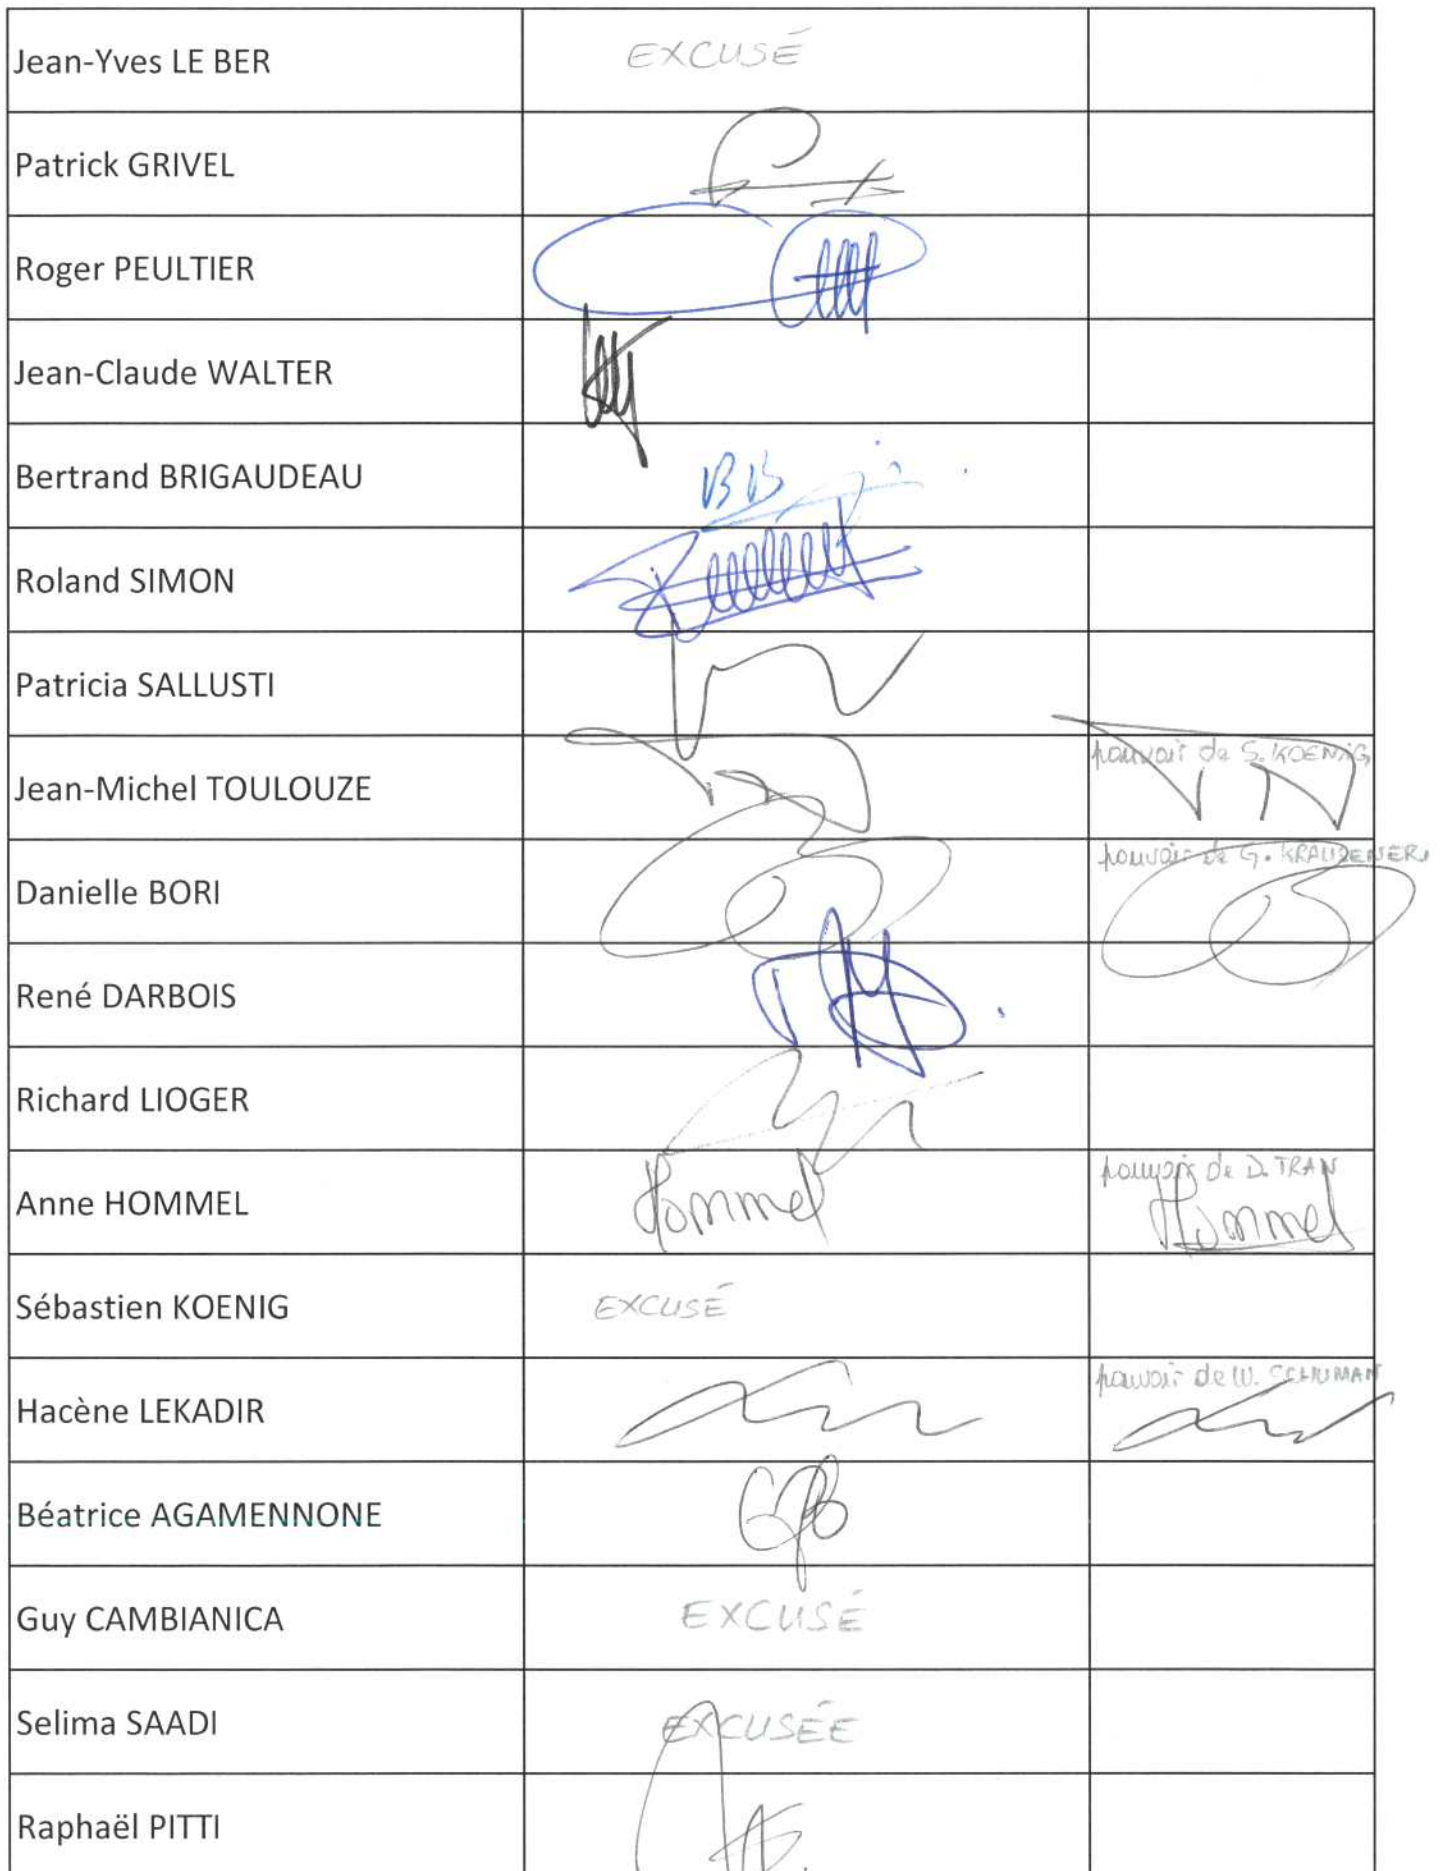 Jean-Yves LE BER EXCUSÉ
Patrick GRIVEL
Roger PEULTIER
Jean-Claude WALTER
Bertrand BRIGAUDEAU BB
Roland SIMON
Patricia SALLUSTI
Jean-Michel TOULOUZE pouvoir de S. KOENIG
Danielle BORI pouvoir de G. KRAUZENER
René DARBOIS
Richard LIOGER
Anne HOMMEL Hommel pouvoir de D. TRAN Hommel
Sébastien KOENIG EXCUSÉ
Hacène LEKADIR pouvoir de W. SCHUMAN
Béatrice AGAMENNONE
Guy CAMBIANICA EXCUSÉ
Selima SAADI EXCUSÉE
Raphaël PITTI